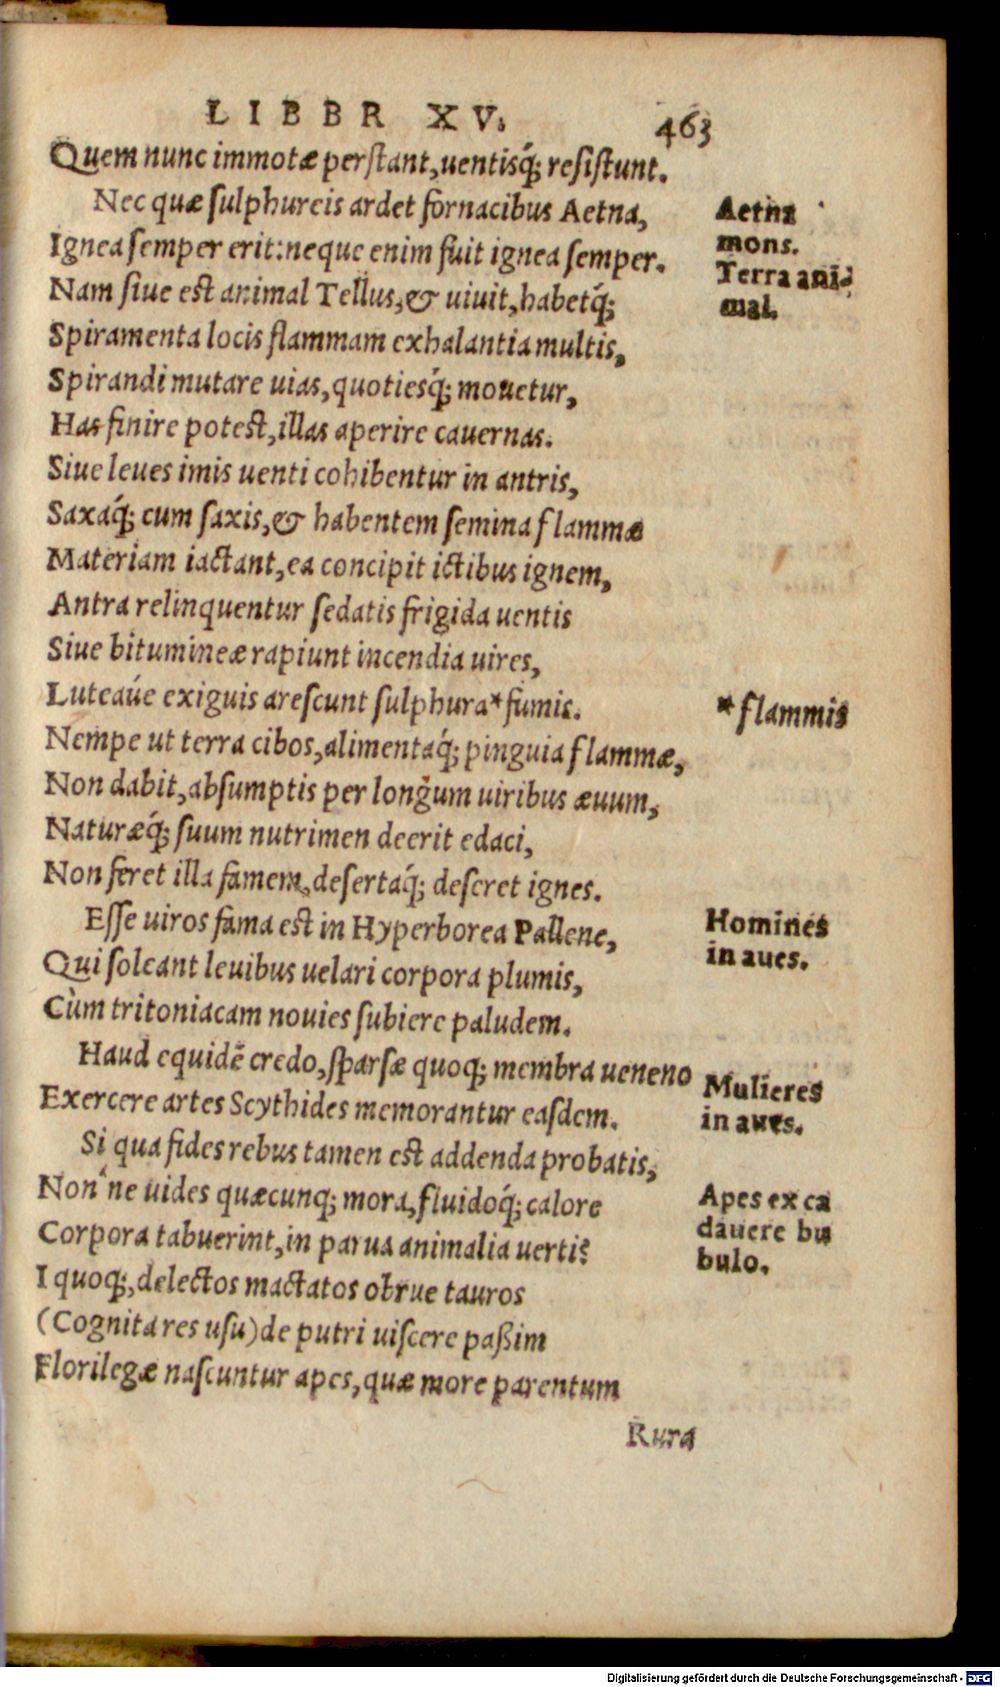 LIBBR XV. 463
Quem nunc immotæ perſtant,uentisq́; reſiſtunt.
Nec quæ ſulphureis ardet fornacibus Aetna,
Ignea ſemper erit:neque enim fuit ignea ſemper.
Nam ſiue eſt animal Tellus,& uiuit,habetq́;
Spiramenta locis flammam exhalantia multis,
Spirandi mutare uias,quotiesq́; mouetur,
Has finire poteſt,illas aperire cauernas.
Siue leues imis uenti cohibentur in antris,
Saxaq́; cum ſaxis,& habentem ſemina flammæ
Materiam iactant,ea concipit ictibus ignem,
Antra relinquentur ſedatis frigida uentis
Siue bitumineæ rapiunt incendia uires,
Luteaúe exiguis areſcunt ſulphura*fumis.
Nempe ut terra cibos,alimentaq́; pinguia flammæ,
Non dabit,abſumptis per longum uiribus æuum,
Naturæq́; ſuum nutrimen deerit edaci,
Non feret illa famem,deſertaq́; deſeret ignes.
Eſſe uiros fama eſt in Hyperborea Pallene,
Qui ſoleant leuibus uelari corpora plumis,
Cùm tritoniacam nouies ſubiere paludem.
Haud equidē credo,ſparſæ quoq; membra ueneno
Exercere artes Scythides memorantur eaſdem.
Si qua fides rebus tamen eſt addenda probatis,
Non ne uides quæcunq; mora,fluidoq́; calore
Corpora tabuerint,in parua animalia uerti?
I quoq;,delectos mactatos obrue tauros
(Cognita res uſu)de putri uiſcere paßim
Florilegæ naſcuntur apes,quæ more parentum
Rura
Aetna
mons.
Terra ani-
mal.
*flammis
Homines
in aues.
Mulieres
in aues.
Apes ex ca
dauere bu
bulo.
Digitalisierung gefördert durch die Deutsche Forschungsgemeinschaft - DFG